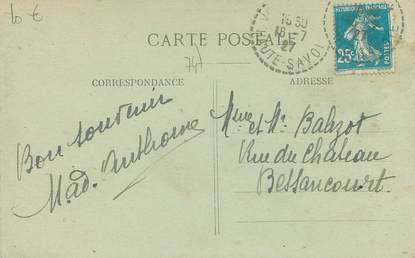 10 €
CARTE POSTALE
16 30
18-7
27
UTE-SAVOI
25c
POSTES
74
CORRESPONDANCE
ADRESSE
Bon souvenir
Mad. Anthoine
Mme et Mr Balizot
Rue du Château
Bessancourt.